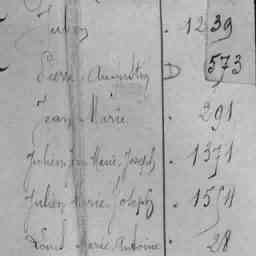 Julien . 1239
Pierre Augustin D 573
Jean Marie . 291
Julien Jean Marie Joseph . 1371
Julien Marie Joseph . 1554
Louis Marie Antoine . 28